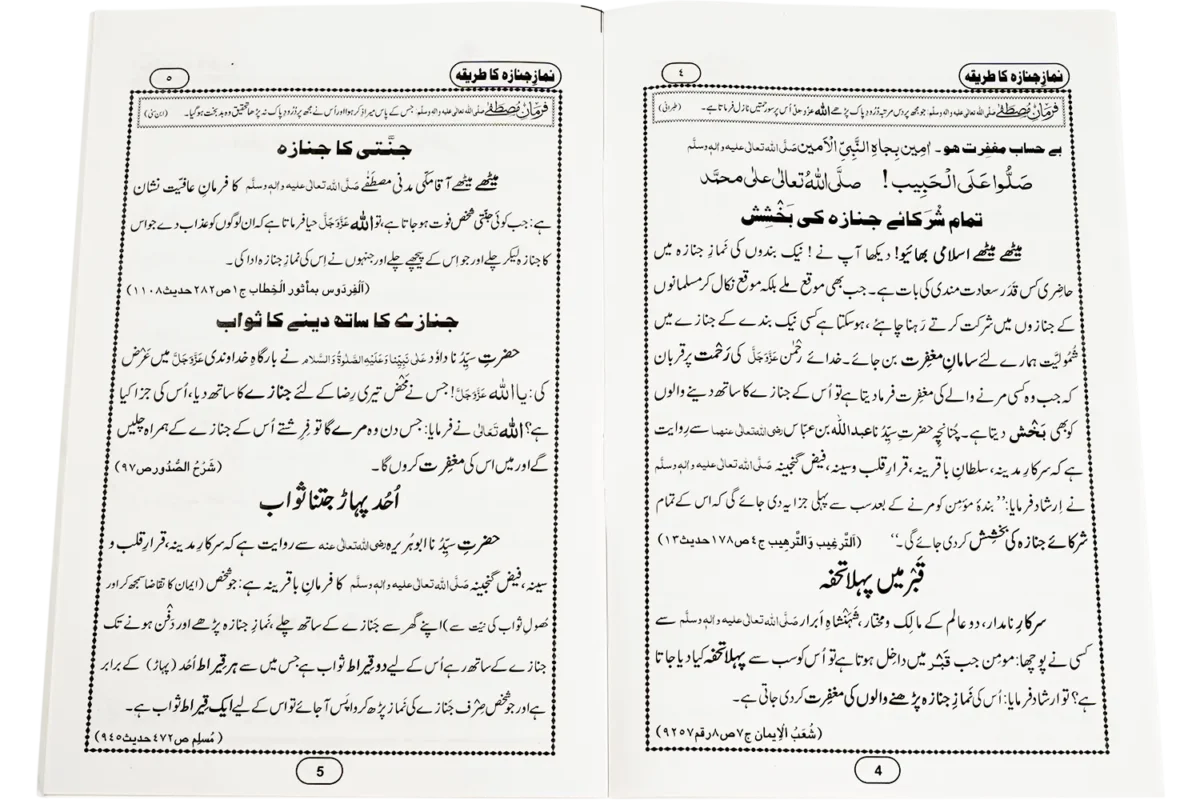 نمازِ جنازہ کا طریقہ
٤
فرمانِ مُصطَفٰے صلی اللہ تعالٰی علیہ والہٖ وسلّم: جو مجھ پر دس مرتبہ دُرُود پاک پڑھے اللہ عزوجل اُس پر سو رحمتیں نازل فرماتا ہے۔ (طبرانی)
بے حساب مغفِرت ہو۔ اٰمِین بِجَاہِ النَّبِیِّ الْاَمین صَلَّی اللہ تعالٰی علیہ واٰلہٖ وسلَّم
صَلُّوا عَلَی الْحَبِیب! صلَّی اللہُ تعالٰی علٰی محمَّد
تمام شُرَکائے جنازہ کی بَخْشِش
میٹھے میٹھے اسلامی بھائیو! دیکھا آپ نے! نیک بندوں کی نَمازِ جنازہ میں
حاضِری کس قَدَر سعادت مندی کی بات ہے۔ جب بھی موقع ملے بلکہ موقع نکال کر مسلمانوں
کے جنازوں میں شرکت کرتے رَہنا چاہئے، ہو سکتا ہے کسی نیک بندے کے جنازے میں
شُمُولیَّت ہمارے لئے سامانِ مغفِرت بن جائے۔ خدائے رَحْمٰن عَزَّوَجَلَّ کی رَحْمَت پر قربان
کہ جب وہ کسی مرنے والے کی مغفِرت فرما دیتا ہے تو اُس کے جنازے کا ساتھ دینے والوں
کو بھی بَخْش دیتا ہے۔ چُنانچِہ حضرتِ سیِّدُنا عبداللہ بن عبّاس رضی اللہ تعالٰی عنھما سے رِوایت
ہے کہ سرکارِ مدینہ، سلطانِ باقرینہ، قرارِ قلب وسینہ، فیض گنجینہ صَلَّی اللہ تعالٰی علیہ واٰلہٖ وسلَّم
نے اِرشاد فرمایا: ’’بندۂ مؤمِن کو مرنے کے بعد سب سے پہلی جزا یہ دی جائے گی کہ اس کے تمام
شرکائے جنازہ کی بَخْشِش کر دی جائے گی۔‘‘ (اَلتَّرغِیب وَالتَّرھِیب ج٤ ص١٧٨ حدیث١٣)
قَبْر میں پہلا تحفہ
سرکارِ نامدار، دو عالم کے مالِک ومختار، شَہَنْشاہِ اَبرار صَلَّی اللہ تعالٰی علیہ واٰلہٖ وسلَّم سے
کسی نے پوچھا: مومِن جب قَبْر میں داخِل ہوتا ہے تو اُس کو سب سے پہلا تحفہ کیا دیا جاتا
ہے؟ تو ارشاد فرمایا: اُس کی نَمازِ جنازہ پڑھنے والوں کی مغفِرت کر دی جاتی ہے۔
(شُعَبُ الْاِیمان ج٧ ص٨ رقم ٩٢٥٧)
4
نمازِ جنازہ کا طریقہ
٥
فرمانِ مُصطَفٰے صلی اللہ تعالٰی علیہ والہٖ وسلّم: جس کے پاس میرا ذکر ہوا اور اُس نے مجھ پر دُرُود پاک نہ پڑھا تحقیق وہ بد بخت ہو گیا۔ (ابن سنی)
جنَّتی کا جنازہ
میٹھے میٹھے آقا مکّی مدنی مصطَفٰے صَلَّی اللہ تعالٰی علیہ واٰلہٖ وسلَّم کا فرمانِ عافیّت نشان
ہے: جب کوئی جنّتی شخص فوت ہو جاتا ہے، تو اللہ عَزَّوَجَلَّ حیا فرماتا ہے کہ ان لوگوں کو عذاب دے جو اس
کا جنازہ لیکر چلے اور جو اِس کے پیچھے چلے اور جنہوں نے اِس کی نمازِ جنازہ ادا کی۔
(اَلْفِردَوس بمأثور الْخِطاب ج١ ص٢٨٢ حدیث١١٠٨)
جنازے کا ساتھ دینے کا ثواب
حضرتِ سیِّدُنا داوٗد عَلٰی نَبِیِّنَا وَعَلَیْہِ الصَّلٰوۃُ وَالسَّلَام نے بارگاہِ خداوندی عَزَّوَجَلَّ میں عَرْض
کی: یا اللہ عَزَّوَجَلَّ! جس نے مَحْض تیری رِضا کے لئے جنازے کا ساتھ دیا، اُس کی جزا کیا
ہے؟ اللہ تَعَالٰی نے فرمایا: جس دن وہ مرے گا تو فِرِشتے اُس کے جنازے کے ہمراہ چلیں
گے اور میں اس کی مغفِرت کروں گا۔ (شَرْحُ الصُّدُور ص٩٧)
اُحُد پہاڑ جتنا ثواب
حضرتِ سیِّدُنا ابو ہُریرہ رضی اللہ تعالٰی عنہ سے روایت ہے کہ سرکارِ مدینہ، قرارِ قلب و
سینہ، فیض گنجینہ صَلَّی اللہ تعالٰی علیہ واٰلہٖ وسلَّم کا فرمانِ باقرینہ ہے: جو شخص (ایمان کا تقاضا سمجھ کر اور
حُصولِ ثواب کی نیّت سے) اپنے گھر سے جَنازے کے ساتھ چلے، نَمازِ جنازہ پڑھے اور دَفْن ہونے تک
جنازے کے ساتھ رہے اُس کے لیے دو قیراط ثواب ہے جس میں سے ہر قیراط اُحُد (پہاڑ) کے برابر
ہے اور جو شخص صِرْف جَنازے کی نماز پڑھ کر واپَس آ جائے تو اس کے لیے ایک قِیراط ثواب ہے۔
(مُسلِم ص٤٧٢ حدیث٩٤٥)
5